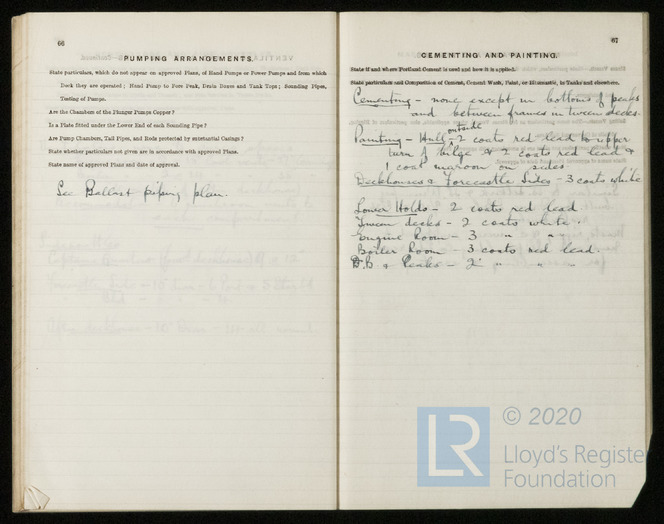 66
PUMPING ARRANGEMENTS.
State particulars, which do not appear on approved Plans, of Hand Pumps or Power Pumps and from which
Deck they are operated; Hand Pump to Fore Peak, Drain Boxes and Tank Tops; Sounding Pipes,
Testing of Pumps.
Are the Chambers of the Plunger Pumps Copper?
Is a Plate fitted under the Lower End of each Sounding Pipe?
Are Pump Chambers, Tail Pipes, and Rods protected by substantial Casings?
State whether particulars not given are in accordance with approved Plans.
State name of approved Plans and date of approval.
See Ballast piping plan.
67
CEMENTING AND PAINTING.
State if and where Portland Cement is used and how it is applied.
State particulars and Composition of Cement, Cement Wash, Paint, or Bitumastic, in Tanks and elsewhere.
Cementing - none except in bottoms of peaks
and between frames in tween decks.
outside
Painting - Hull - 2 coats red lead to upper
turn of bilge & 2 coats red lead &
1 coat maroon on sides
Deckhouses & Forecastle Sides - 3 coats white
Lower Holds - 2 coats red lead
Tween decks - 2 coats white
Engine Room - 3 " "
Boiler Room - 3 coats red lead.
D.B & Peaks - 2 " " "
© 2020
LR
Lloyd's Register
Foundation